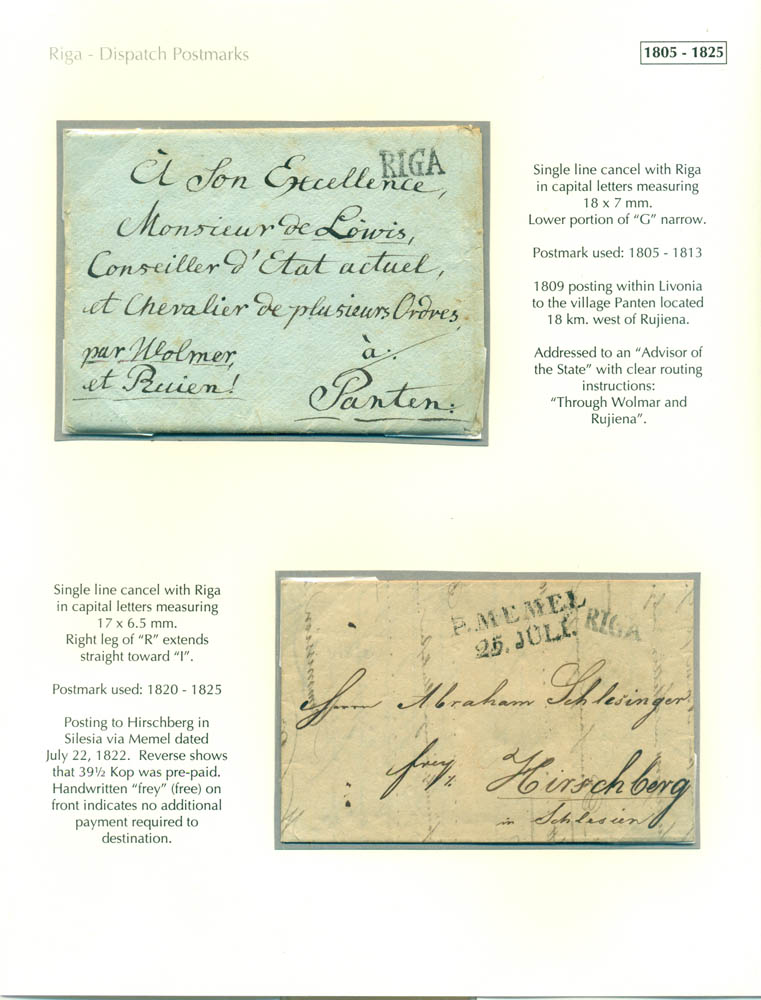 Riga - Dispatch Postmarks
1805 - 1825
RIGA
À Son Excellence,
Monsieur de Löwis,
Conseiller d'Etat actuel,
et Chevalier de plusieurs Ordres,
par Wolmer,
et Ruien!
à:
Panten:
Single line cancel with Riga
in capital letters measuring
18 x 7 mm.
Lower portion of “G” narrow.
Postmark used: 1805 - 1813
1809 posting within Livonia
to the village Panten located
18 km. west of Rujiena.
Addressed to an “Advisor of
the State” with clear routing
instructions:
“Through Wolmar and
Rujiena”.
Single line cancel with Riga
in capital letters measuring
17 x 6.5 mm.
Right leg of “R” extends
straight toward “I”.
Postmark used: 1820 - 1825
Posting to Hirschberg in
Silesia via Memel dated
July 22, 1822.  Reverse shows
that 39½ Kop was pre-paid.
Handwritten “frey” (free) on
front indicates no additional
payment required to
destination.
P. MEMEL
25. JULI.
RIGA
Herrn Abraham Schlesinger
frey
Hirschberg
in Schlesien